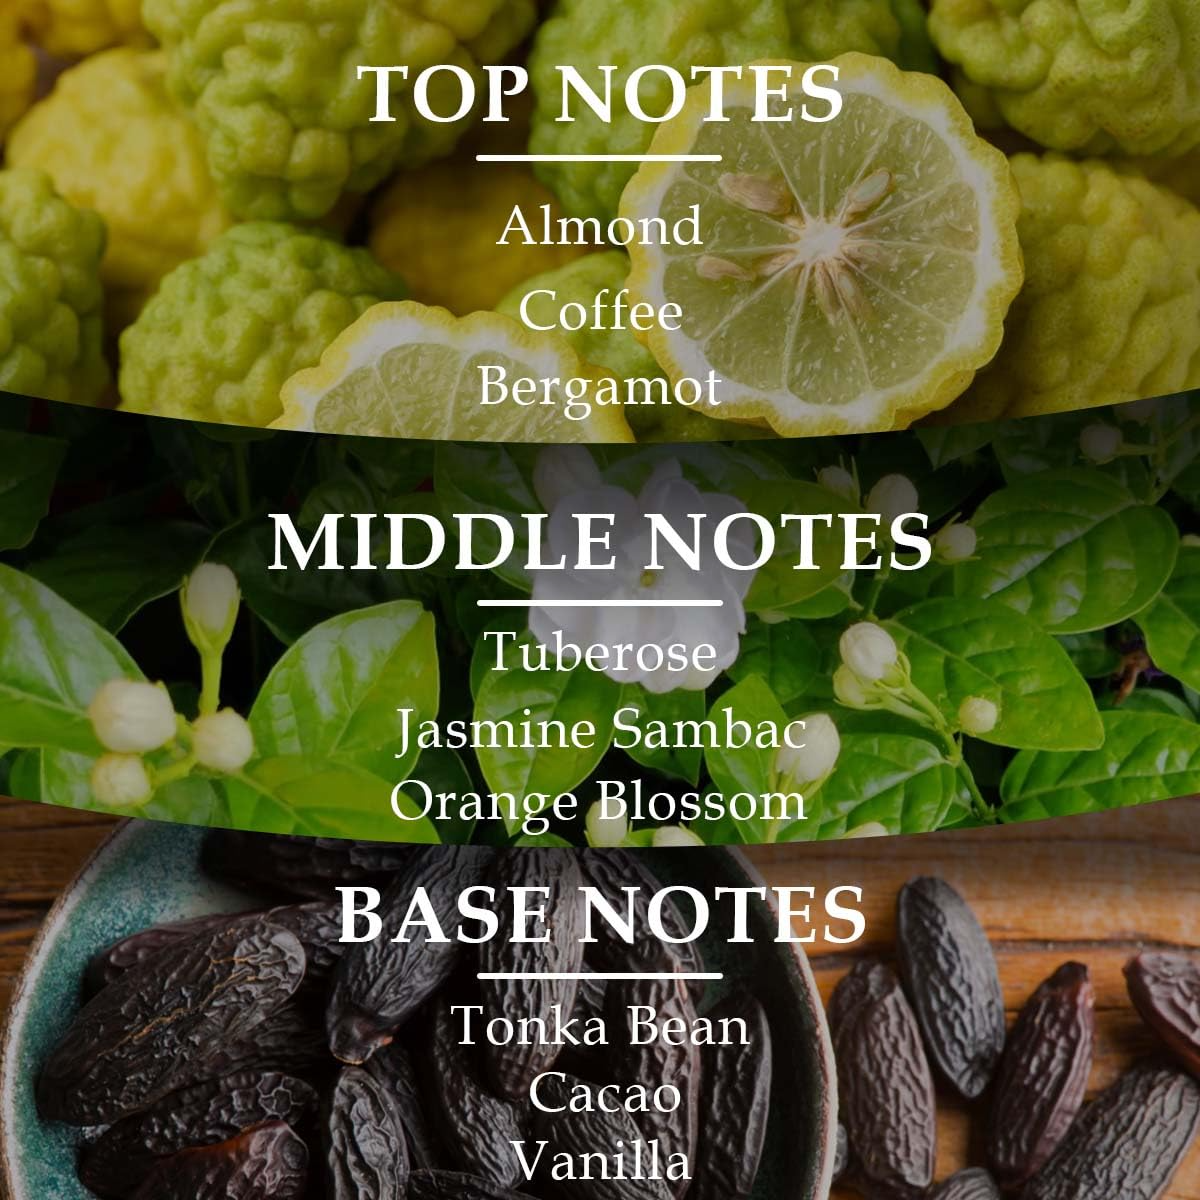 TOP NOTES
Almond
Coffee
Bergamot
MIDDLE NOTES
Tuberose
Jasmine Sambac
Orange Blossom
BASE NOTES
Tonka Bean
Cacao
Vanilla